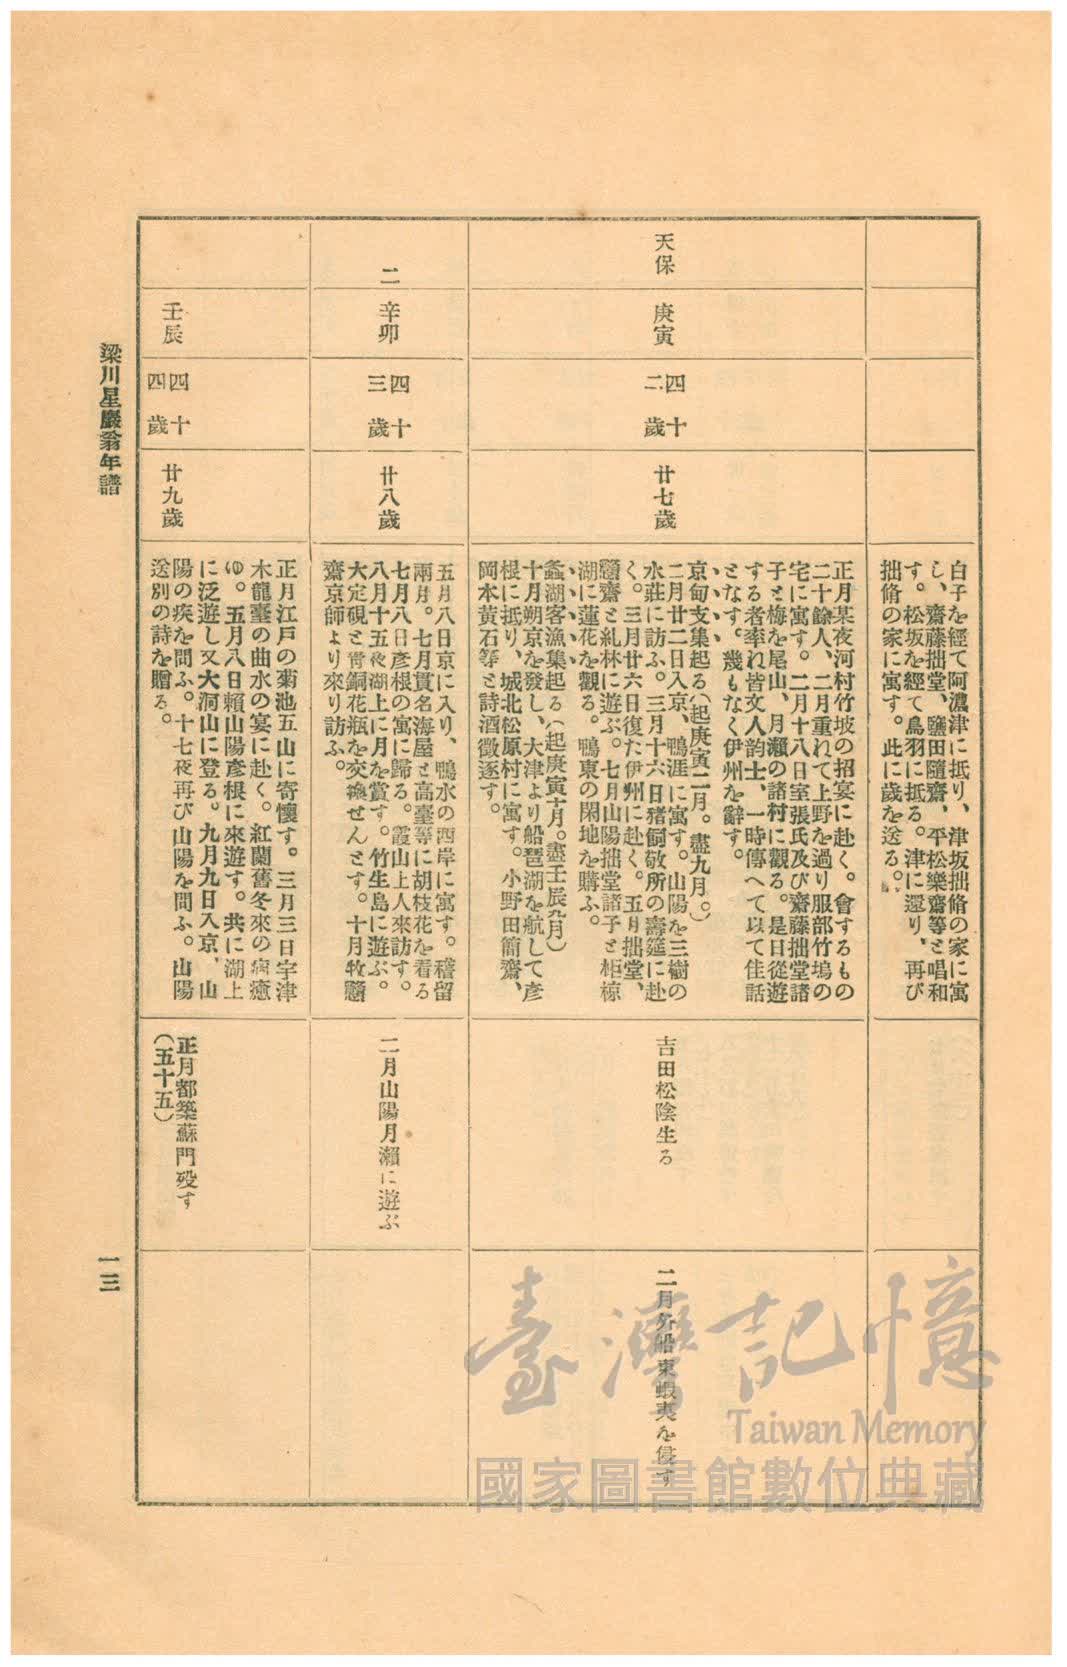 白子を經て阿濃津に抵り、津坂拙脩の家に寓
し、齋藤拙堂、鹽田隨齋、平松樂齋等と唱和
す。松坂を經て鳥羽に抵る。津に還り、再び
拙脩の家に寓す。此に歲を送る。
天保
庚寅
四十
二歲
廿七歲
正月某夜河村竹坡の招宴に赴く。會するもの
二十餘人、二月重れて上野を過り服部竹塢の
宅に寓す。二月十八日室張氏及び齋藤拙堂諸
子と梅を尾山、月瀨の諸村に觀る。是日從遊
する者率れ皆文人韵士、一時傳へて以て佳話
となす。幾もなく伊州を辭す。
京甸支集起る（起庚寅二月。盡九月。）
二月廿二日入京、鴨涯に寓す。山陽を三樹の
水莊に訪ふ。三月十六日猪飼敬所の壽筵に赴
く。三月廿六日復た伊州に赴く。五月拙堂、
戇齋と糺林に遊ぶ。七月山陽拙堂諸子と柜椋
湖に蓮花を觀る。鴨東の閑地を購ふ。
蠡湖客漁集起る（起庚寅十月。盡壬辰九月）
十月朔京を發し、大津より船琶湖を航して彥
根に抵り、城北松原村に寓す。小野田簡齋、
岡本黃石等と詩酒徵逐す。
吉田松陰生る
二月外船東蝦夷を侵す
二
辛卯
四十
三歲
廿八歲
五月八日京に入り、鴨水の西岸に寓す。稽留
兩月。七月貫名海屋と高臺等に胡枝花を看る
七月八日彥根の寓に歸る。霞山上人來訪す。
八月十五夜湖上に月を賞す。竹生島に遊ぶ。
大定硯と靑銅花瓶を交換せんとす。十月牧戇
齋京師より來り訪ふ。
二月山陽月瀨に遊ぶ
壬辰
四十
四歲
廿九歲
正月江戶の菊池五山に寄懷す。三月三日宇津
木龍臺の曲水の宴に赴く。紅蘭舊冬來の病癒
ゆ。五月八日賴山陽彥根に來遊す。共に湖上
に泛遊し又大洞山に登る。九月九日入京、山
陽の疾を問ふ。十七夜再び山陽を問ふ。山陽
送別の詩を贈る。
正月都築蘇門歿す
（五十五）
梁川星巖翁年譜
一三
臺灣記憶
Taiwan Memory
國家圖書館數位典藏